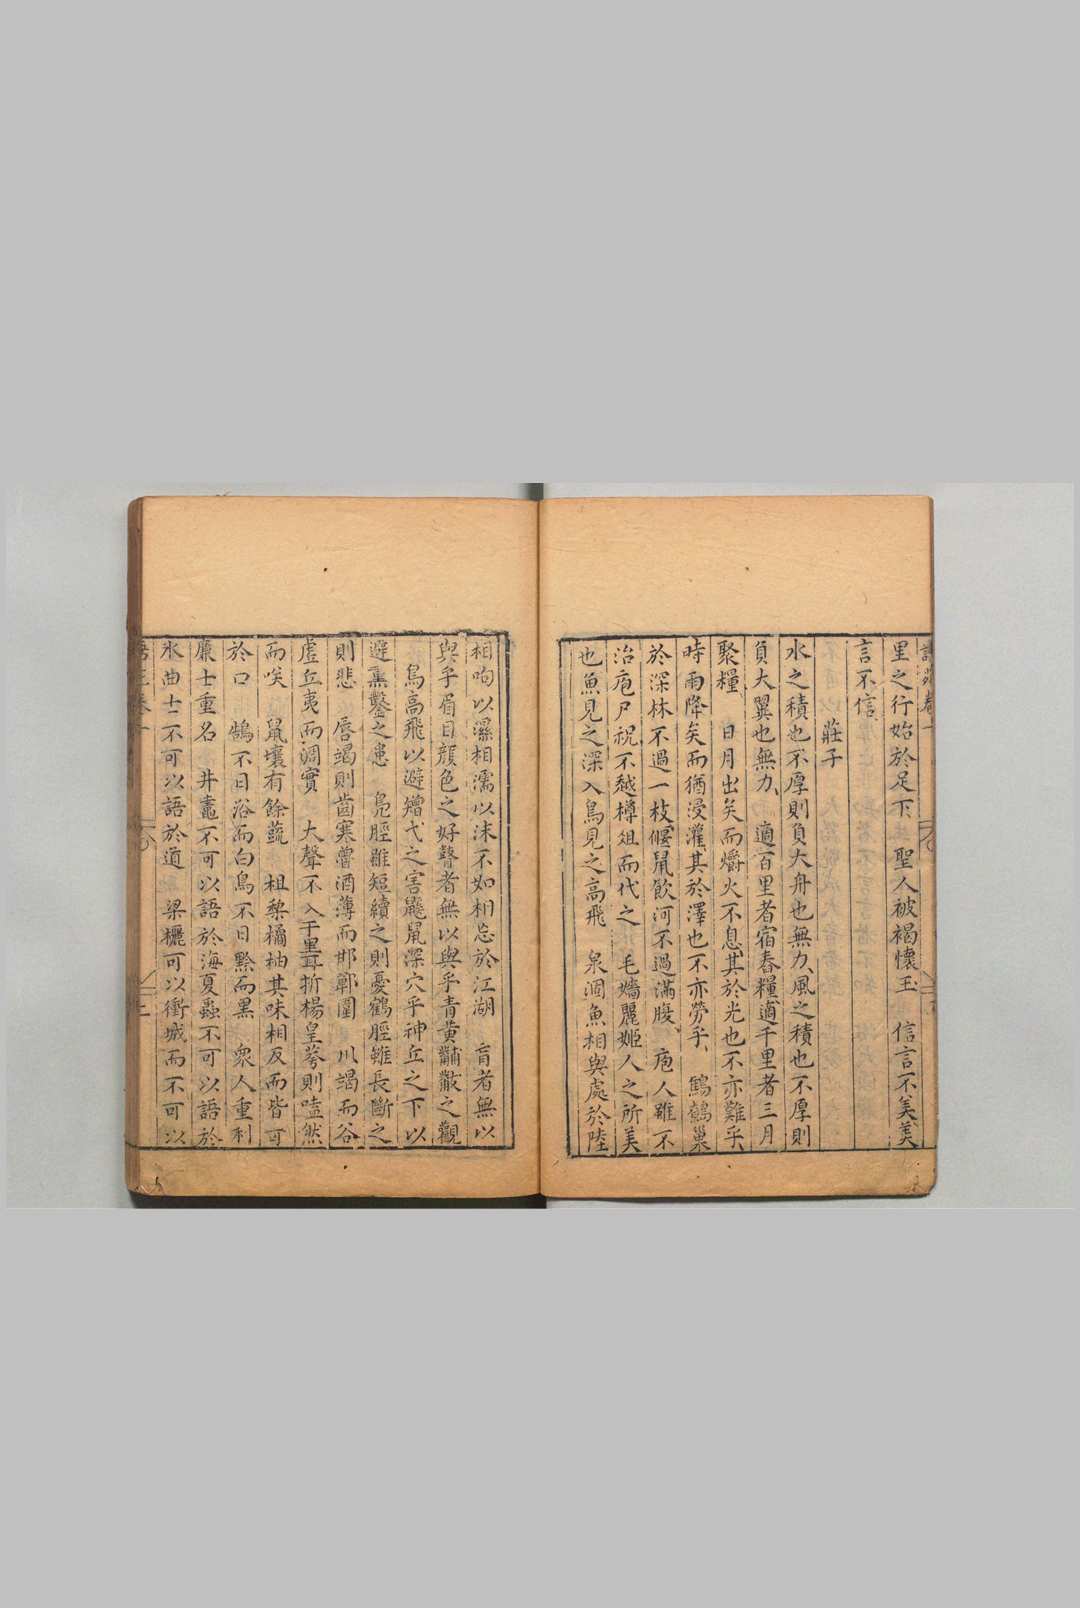 里之行始於足下 聖人被褐懷玉 信言不美美
言不信
莊子
水之積也不厚則負大舟也無力風之積也不厚則
負大翼也無力 適百里者宿舂糧適千里者三月
聚糧 日月出矣而爝火不息其於光也不亦難乎
時雨降矣而猶浸灌其於澤也不亦勞乎 鷦鷯巢
於深林不過一枝偃鼠飲河不過滿腹 庖人雖不
治庖尸祝不越樽俎而代之 毛嬙麗姬人之所美
也魚見之深入鳥見之高飛 泉涸魚相與處於陸
相呴以濕相濡以沫不如相忘於江湖 盲者無以
與乎眉目顏色之好瞽者無以與乎青黃黼黻之觀
鳥高飛以避矰弋之害鼷鼠深穴乎神丘之下以
避熏鑿之患 鳧脛雖短續之則憂鶴脛雖長斷之
則悲 唇竭則齒寒魯酒薄而邯鄲圍 川竭而谷
虛丘夷而淵實 大聲不入千里耳折楊皇荂則嗑然
而笑 鼠壤有餘蔬 柤棃橘柚其味相反而皆可
於口 鵠不日浴而白烏不日黔而黑 眾人重利
廉士重名 井鼃不可以語於海夏蟲不可以語於
氷曲士不可以語於道 梁欐可以衝城而不可以